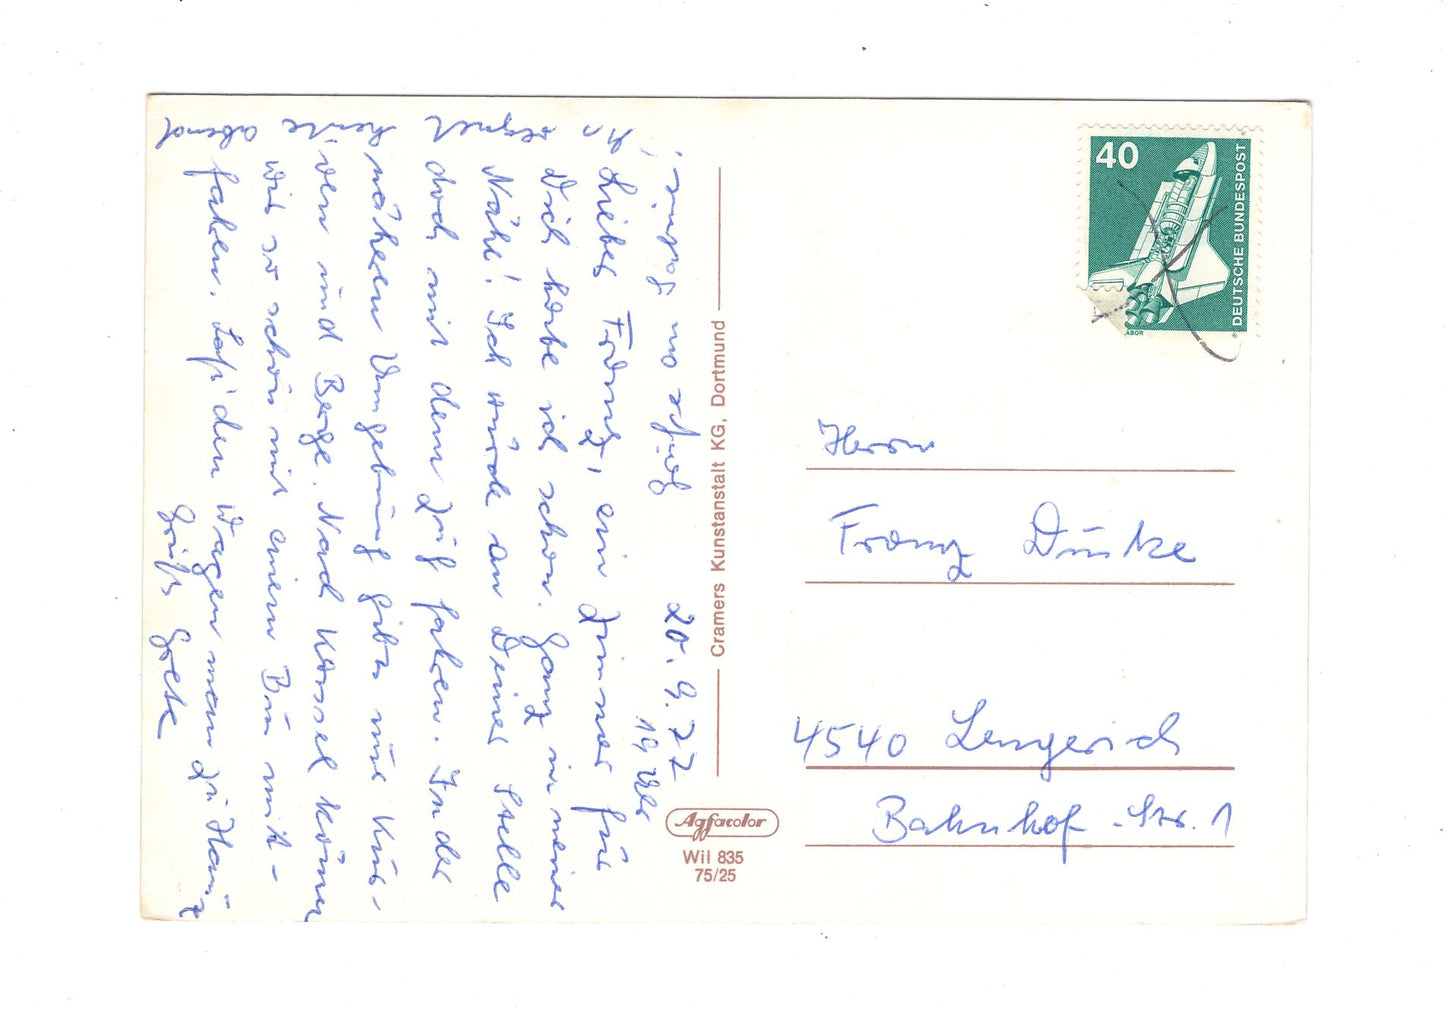 20.9.77
19 Uhr
Lieber Franz, ein Zimmer für
Dich habe ich schon. Ganz in meiner
Nähe! Ich würde an Deiner Stelle
doch mit dem Zug fahren. In der
näheren Umgebung gibts nur Kur-
ven und Berge. Nach Kassel können
wir so schön mit einem Bus mit-
fahren. Laß' den Wagen man zu Hau-
Grüße Grete
regnet
heute
abend
Cramers Kunstanstalt KG, Dortmund
Agfacolor
Wil 835
75/25
40
DEUTSCHE BUNDESPOST
Herrn
Franz Dünke
4540 Lengerich
Bahnhof-Str. 1